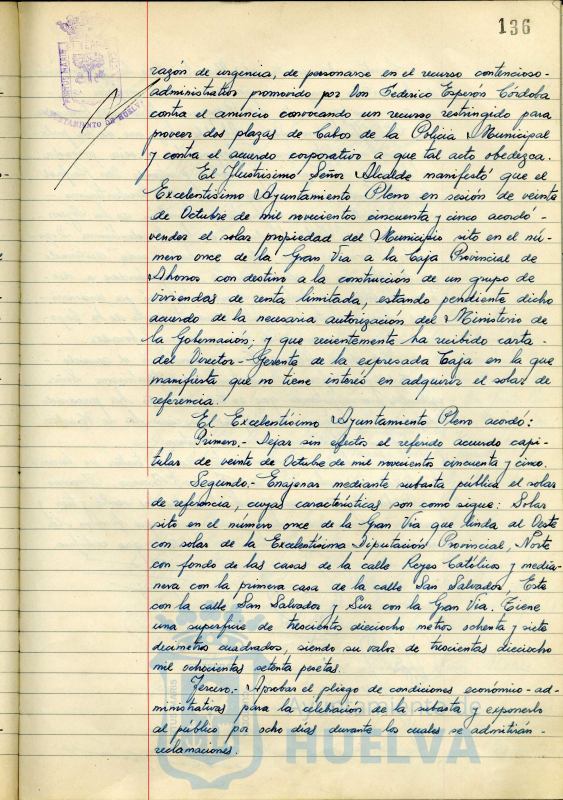 136
razón de urgencia, de personarse en el recurso contencioso-
administrativo promovido por Don Federico Esperón Córdoba
contra el anuncio convocando un recurso restringido para
proveer dos plazas de Cabos de la Policia Municipal
y contra el acuerdo corporativo a que tal acto obedezca.
El Ilustrisimo Señor Alcalde manifestó que el
Excelentisimo Ayuntamiento Pleno en sesión de veinte
de Octubre de mil novecientos cincuenta y cinco acordó -
vender el solar propiedad del Municipio sito en el nú-
mero once de la Gran Via a la Caja Provincial de
Ahorros con destino a la construcción de un grupo de
viviendas de renta limitada, estando pendiente dicho
acuerdo de la necesaria autorización del Ministerio de
la Gobernación; y que recientemente ha recibido carta -
del Director-Gerente de la expresada Caja en la que
manifiesta que no tiene interés en adquirir el solar de
referencia.
El Excelentísimo Ayuntamiento Pleno acordó:
Primero.- Dejar sin efectos el referido acuerdo capi-
tular de veinte de Octubre de mil novecientos cincuenta y cinco.
Segundo.- Enajenar mediante subasta pública el solar
de referencia, cuyas características son como sigue: Solar
sito en el numero once de la Gran Via que linda al Oeste
con solar de la Excelentísima Diputación Provincial, Norte
con fondo de las casas de la calle Reyes Católicos y media-
nera con la primera casa de la calle San Salvador, Este
con la calle San Salvador y Sur con la Gran Via. Tiene
una superficie de trescientos dieciocho metros ochenta y siete
decimetros cuadrados, siendo su valor de trescientas dieciocho
mil ochocientas setenta pesetas.
Tercero.- Aprobar el pliego de condiciones económico-ad-
ministrativas para la celebración de la subasta y exponerlo
al público por ocho días durante los cuales se admitirán -
reclamaciones.
AYUNTAMIENTO DE HUELVA
HUELVA